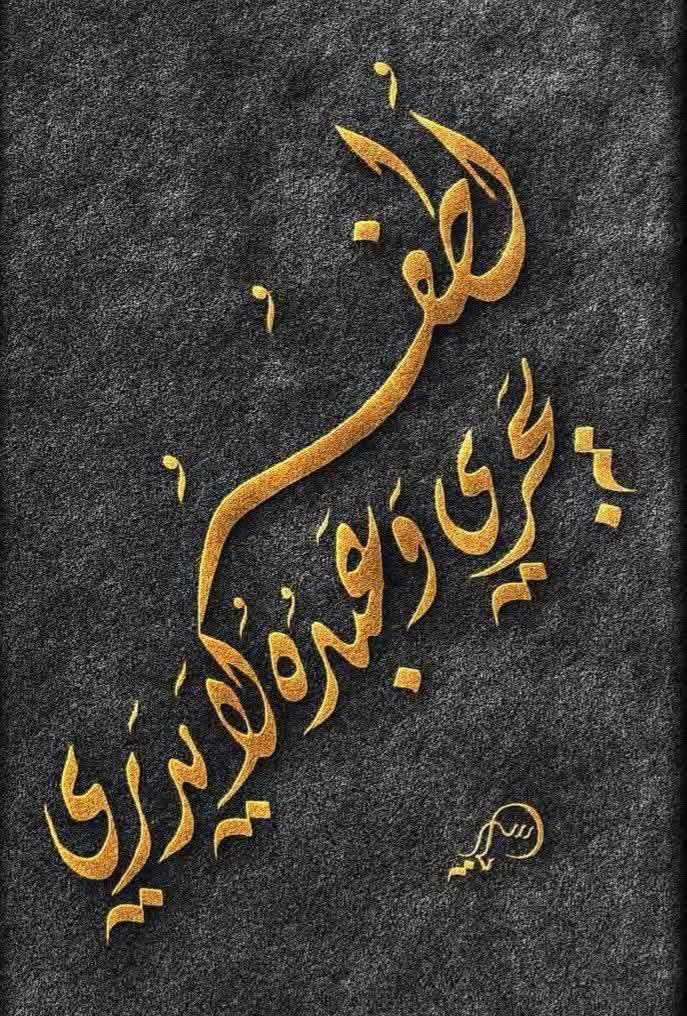 لُطفُهُ
يَجري وَعَبدُهُ لا يَدَري